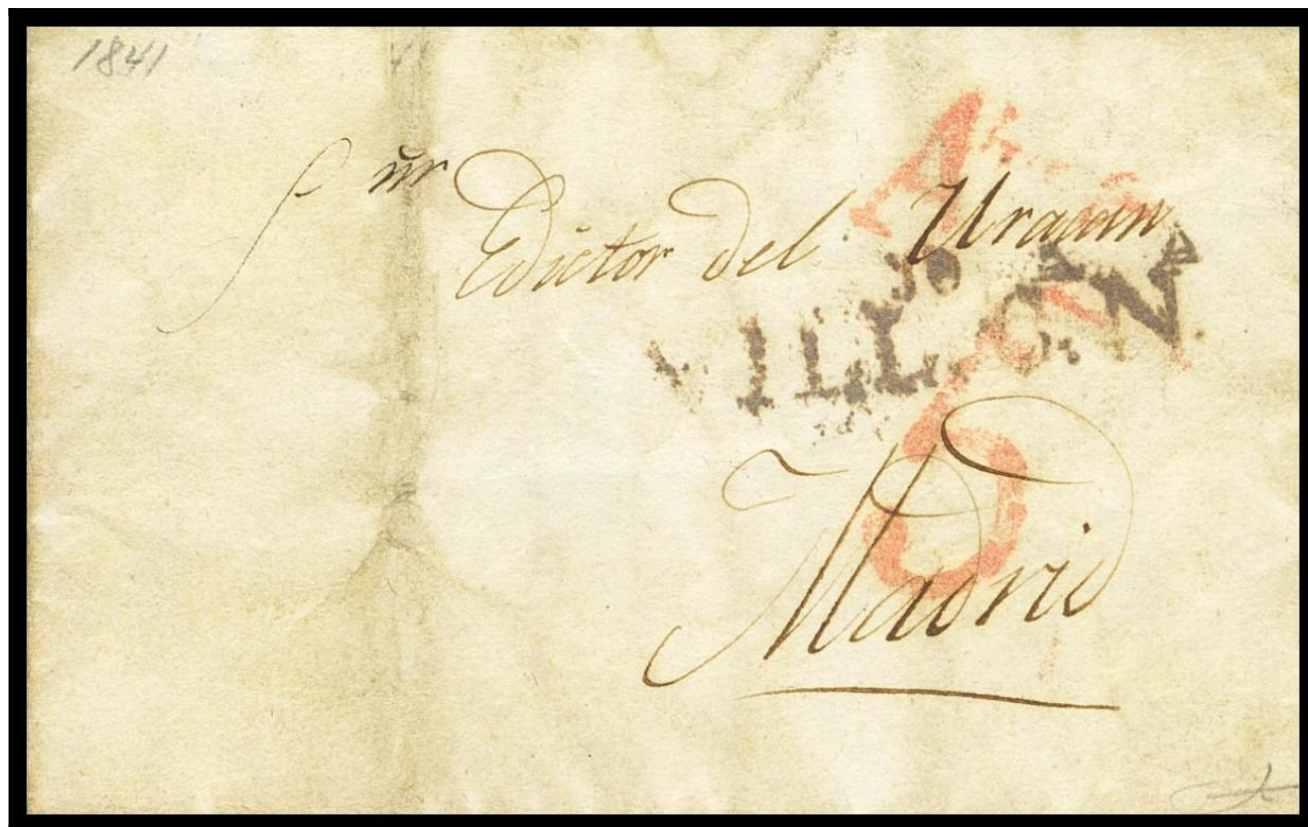 1841
Sr
Edictor del Uracan
VILLON
Madrid